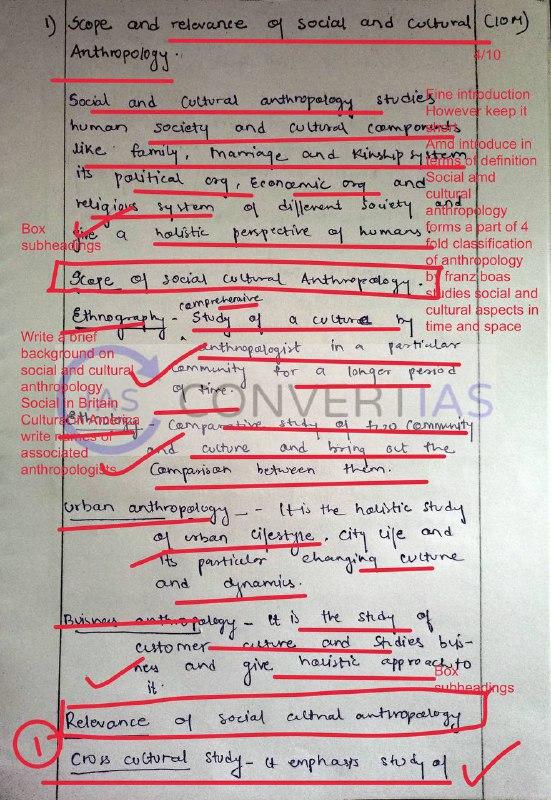 1) Scope and relevance of social and cultural (10M)
Anthropology.
4/10
Social and cultural anthropology studies
human society and cultural components
like family, Marriage and Kinship system
its political org, Economic org and
religious system of different society and
give a holistic perspective of humans.
Fine introduction
However keep it
short
Amd introduce in
terms of definition
Social amd
cultural
anthropology
forms a part of 4
fold classification
of anthropology
by franz boas
studies social and
cultural aspects in
time and space
Box
subheadings
Scope of social cultural Anthropology.
comprehensive
Ethnography - Study of a culture by
anthropologist in a particular
community for a longer period
of time.
Write a brief
background on
social and cultural
anthropology
Social in Britain
Cultural in America
write names of
associated
anthropologists
IAS CONVERTIAS
Ethnology - Comparative study of two community
and culture and bring out the
Comparison between them.
Urban anthropology - - It is the holistic study
of urban lifestyle, city life and
its particular changing culture
and dynamics.
Buisness anthropology - It is the study of
customer culture and studies busi-
ness and give holistic approach to
it.
Box
subheadings
Relevance of social cultural anthropology
1
Cross cultural study - It emphasis study of